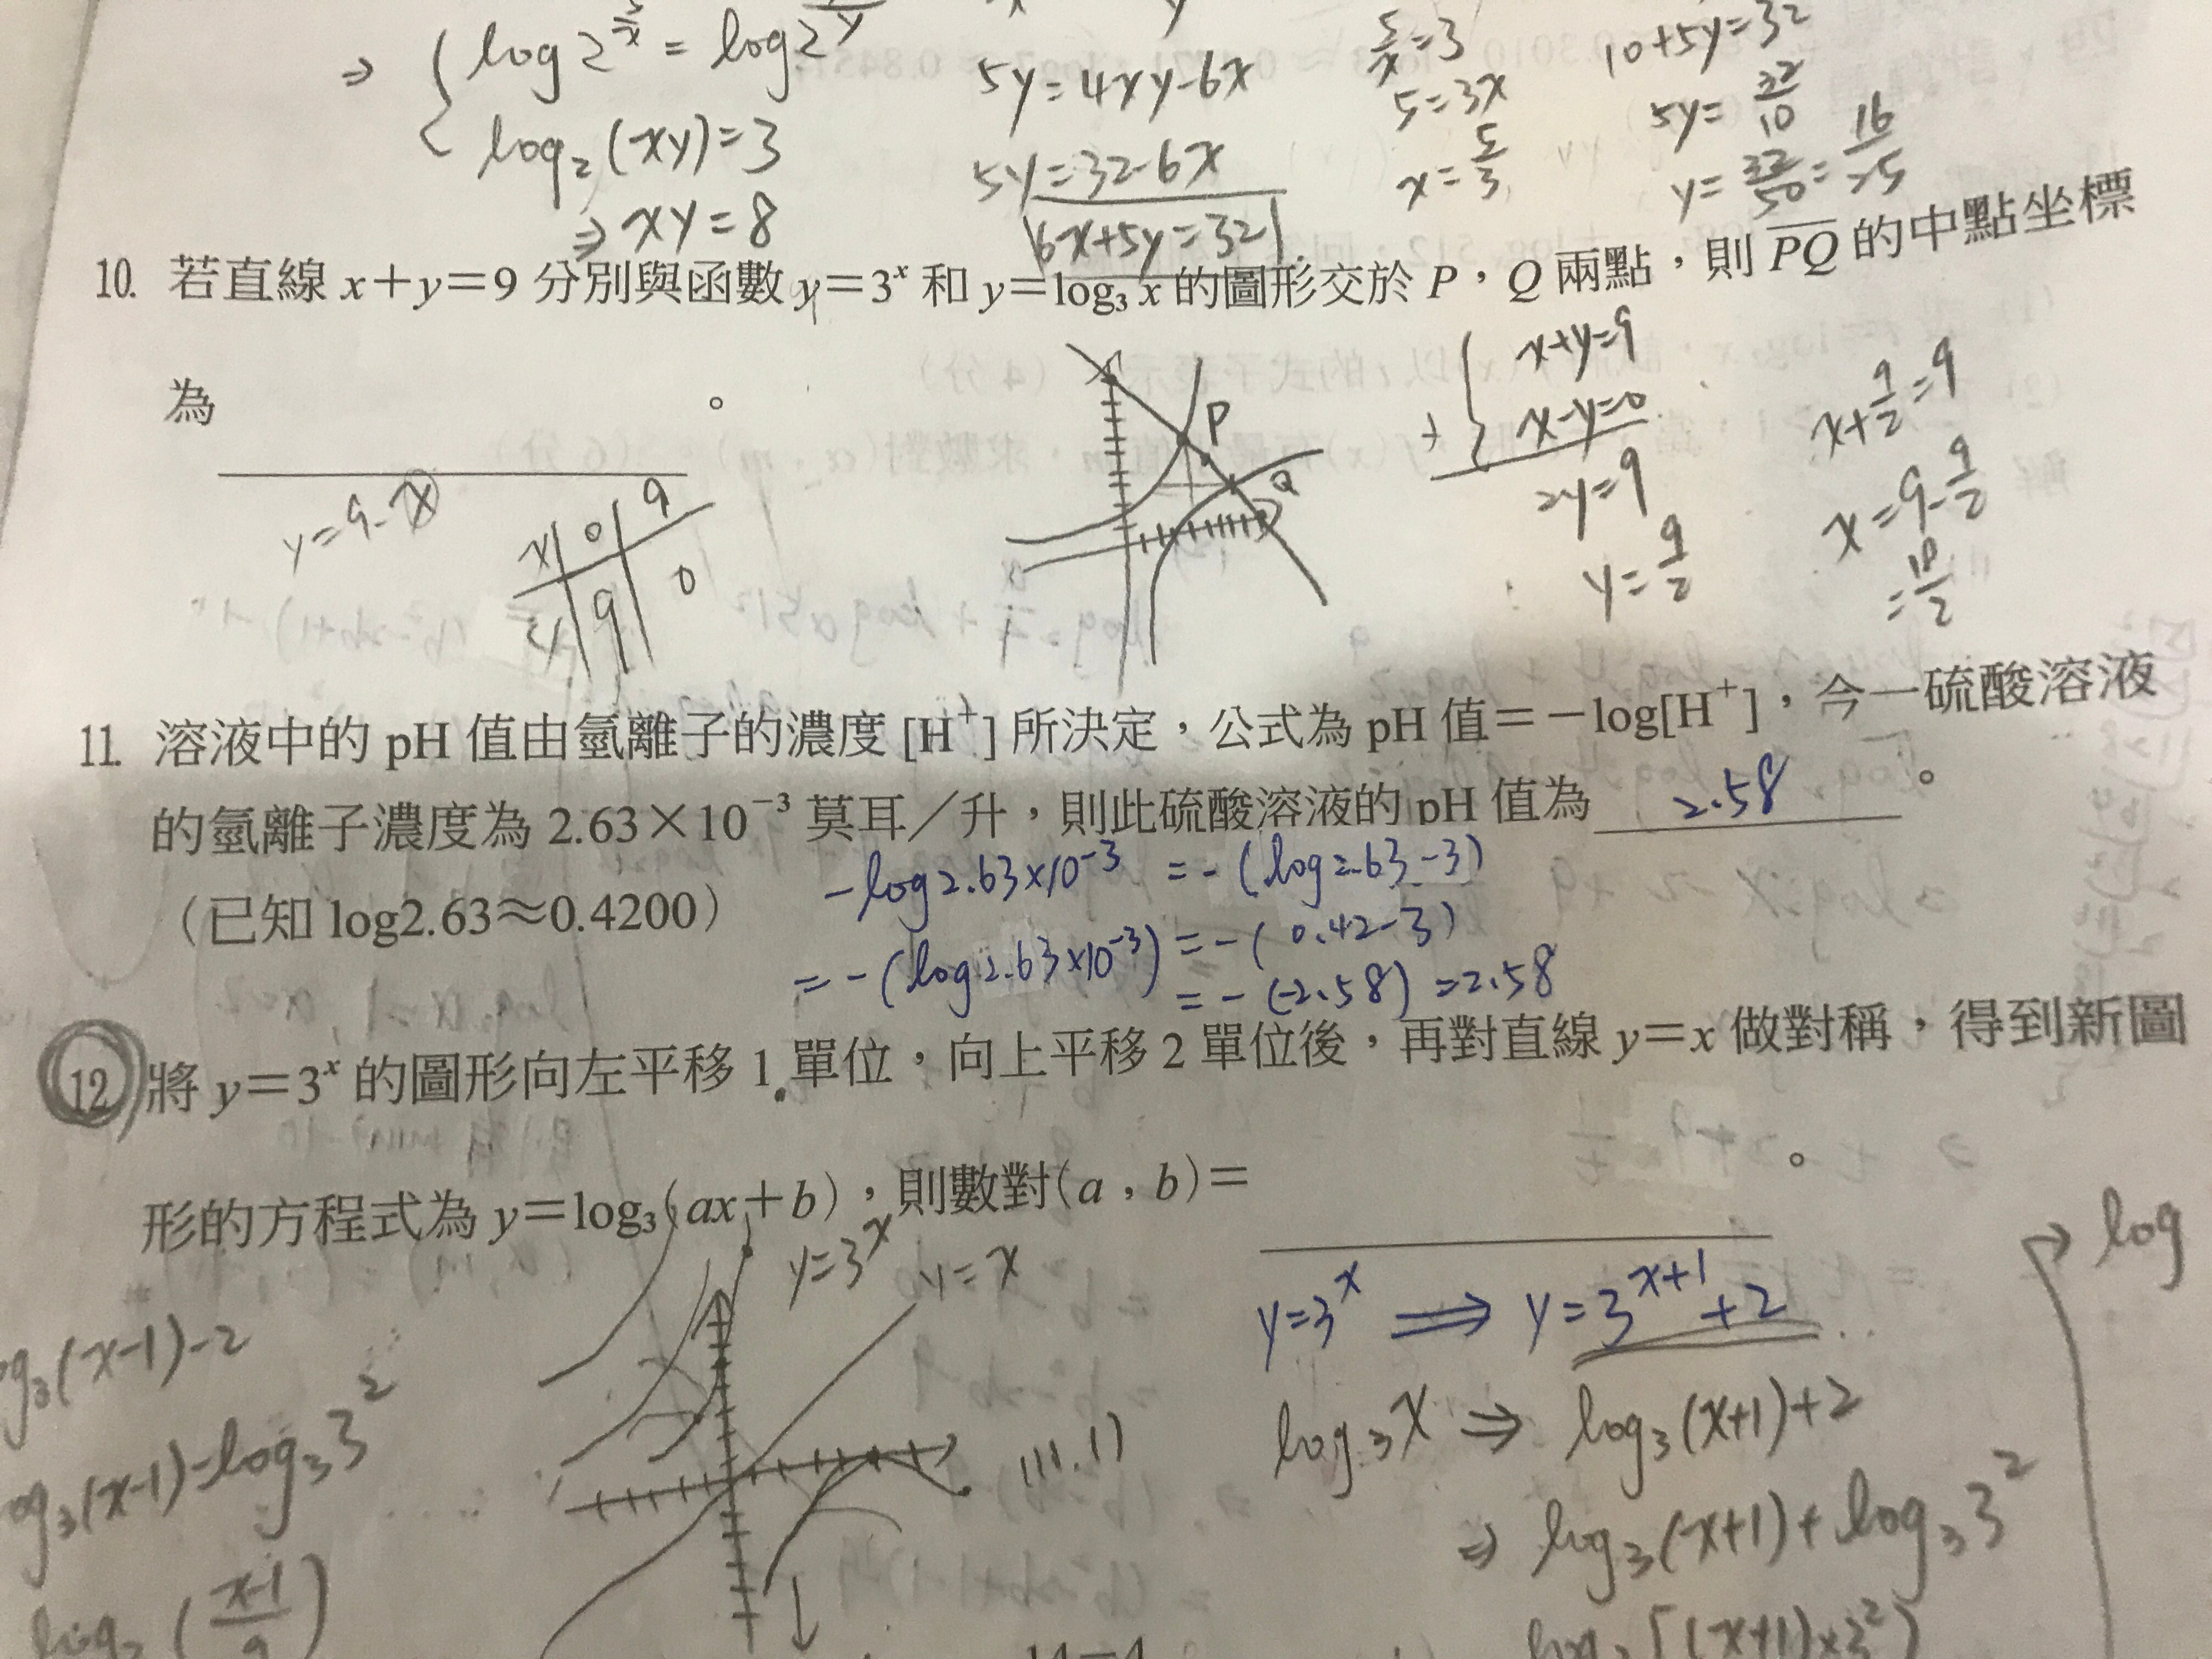 ⇒ { log2^(5/x) = log2
log₂(xy)=3
⇒ xy=8
5y=4xy-6x
5y=32-6x
6x+5y=32
5/x=3
5=3x
x=5/3
10+5y=32
5y=32/10
y=32/50=16/25
10. 若直線 x+y=9 分別與函數 y=3ˣ 和 y=log₃ x 的圖形交於 P,Q 兩點,則 PQ 的中點坐標
為 。
y=9-x
x 0 9
y 9 0
P
Q
x+y=9
+ { x-y=0
2y=9
y=9/2
x+9/2=9
x=9-9/2
11. 溶液中的 pH 值由氫離子的濃度 [H⁺] 所決定,公式為 pH 值=-log[H⁺],今一硫酸溶液
的氫離子濃度為 2.63×10⁻³ 莫耳/升,則此硫酸溶液的 pH 值為 2.58 。
(已知 log2.63≈0.4200)
-log2.63×10⁻³ = -(log2.63-3)
= -(log2.63×10⁻³) = -(0.42-3)
= -(-2.58) =2.58
12. 將 y=3ˣ 的圖形向左平移 1 單位,向上平移 2 單位後,再對直線 y=x 做對稱,得到新圖
形的方程式為 y=log₃(ax+b),則數對(a,b)= 。
y=3ˣ
y=x
y=3ˣ ⟹ y=3ˣ⁺¹+2
log₃x ⇒ log₃(x+1)+2
⇒ log₃(x+1)+log₃3²
[(x+1)×3²)
→ log
og₃(x-1)-2
og₃(x-1)-log₃3²
(11.1)